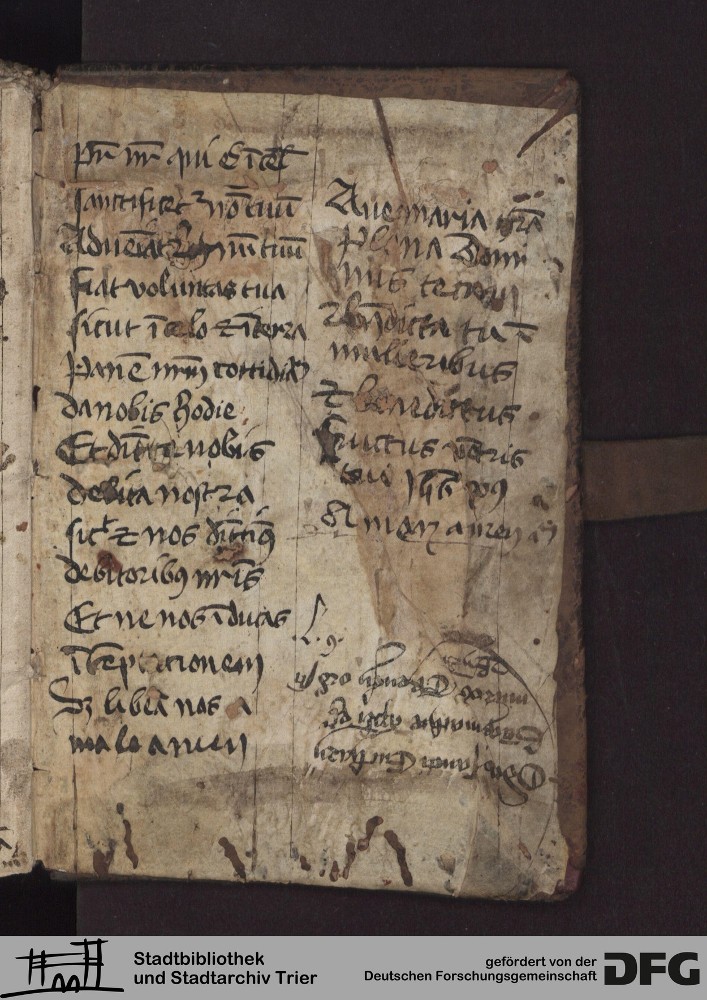 pr̄ nr̄ qui es ī cel
sanctificet² nom̄ tuū
Adueniat regnū tuū
fiat voluntas tua
sicut ī celo et ī terra
Panē nrm̄ cottidiā
da nobis hodie
Et dimitte nobis
debita nostra
sic̄ et nos dimittimꝰ
debitoribꝰ nrīs
Et ne nos īducas
ī temptationem
Sꝫ libera nos a
malo amen
Aue maria gr̄a
Plena Domi
nus tecum
Bn̄dicta tu ī
mulieribus
et benedictus
fructus vētris
tui Ihs xpꝰ
Amen amen
Stadtbibliothek
und Stadtarchiv Trier
gefördert von der
Deutschen Forschungsgemeinschaft
DFG